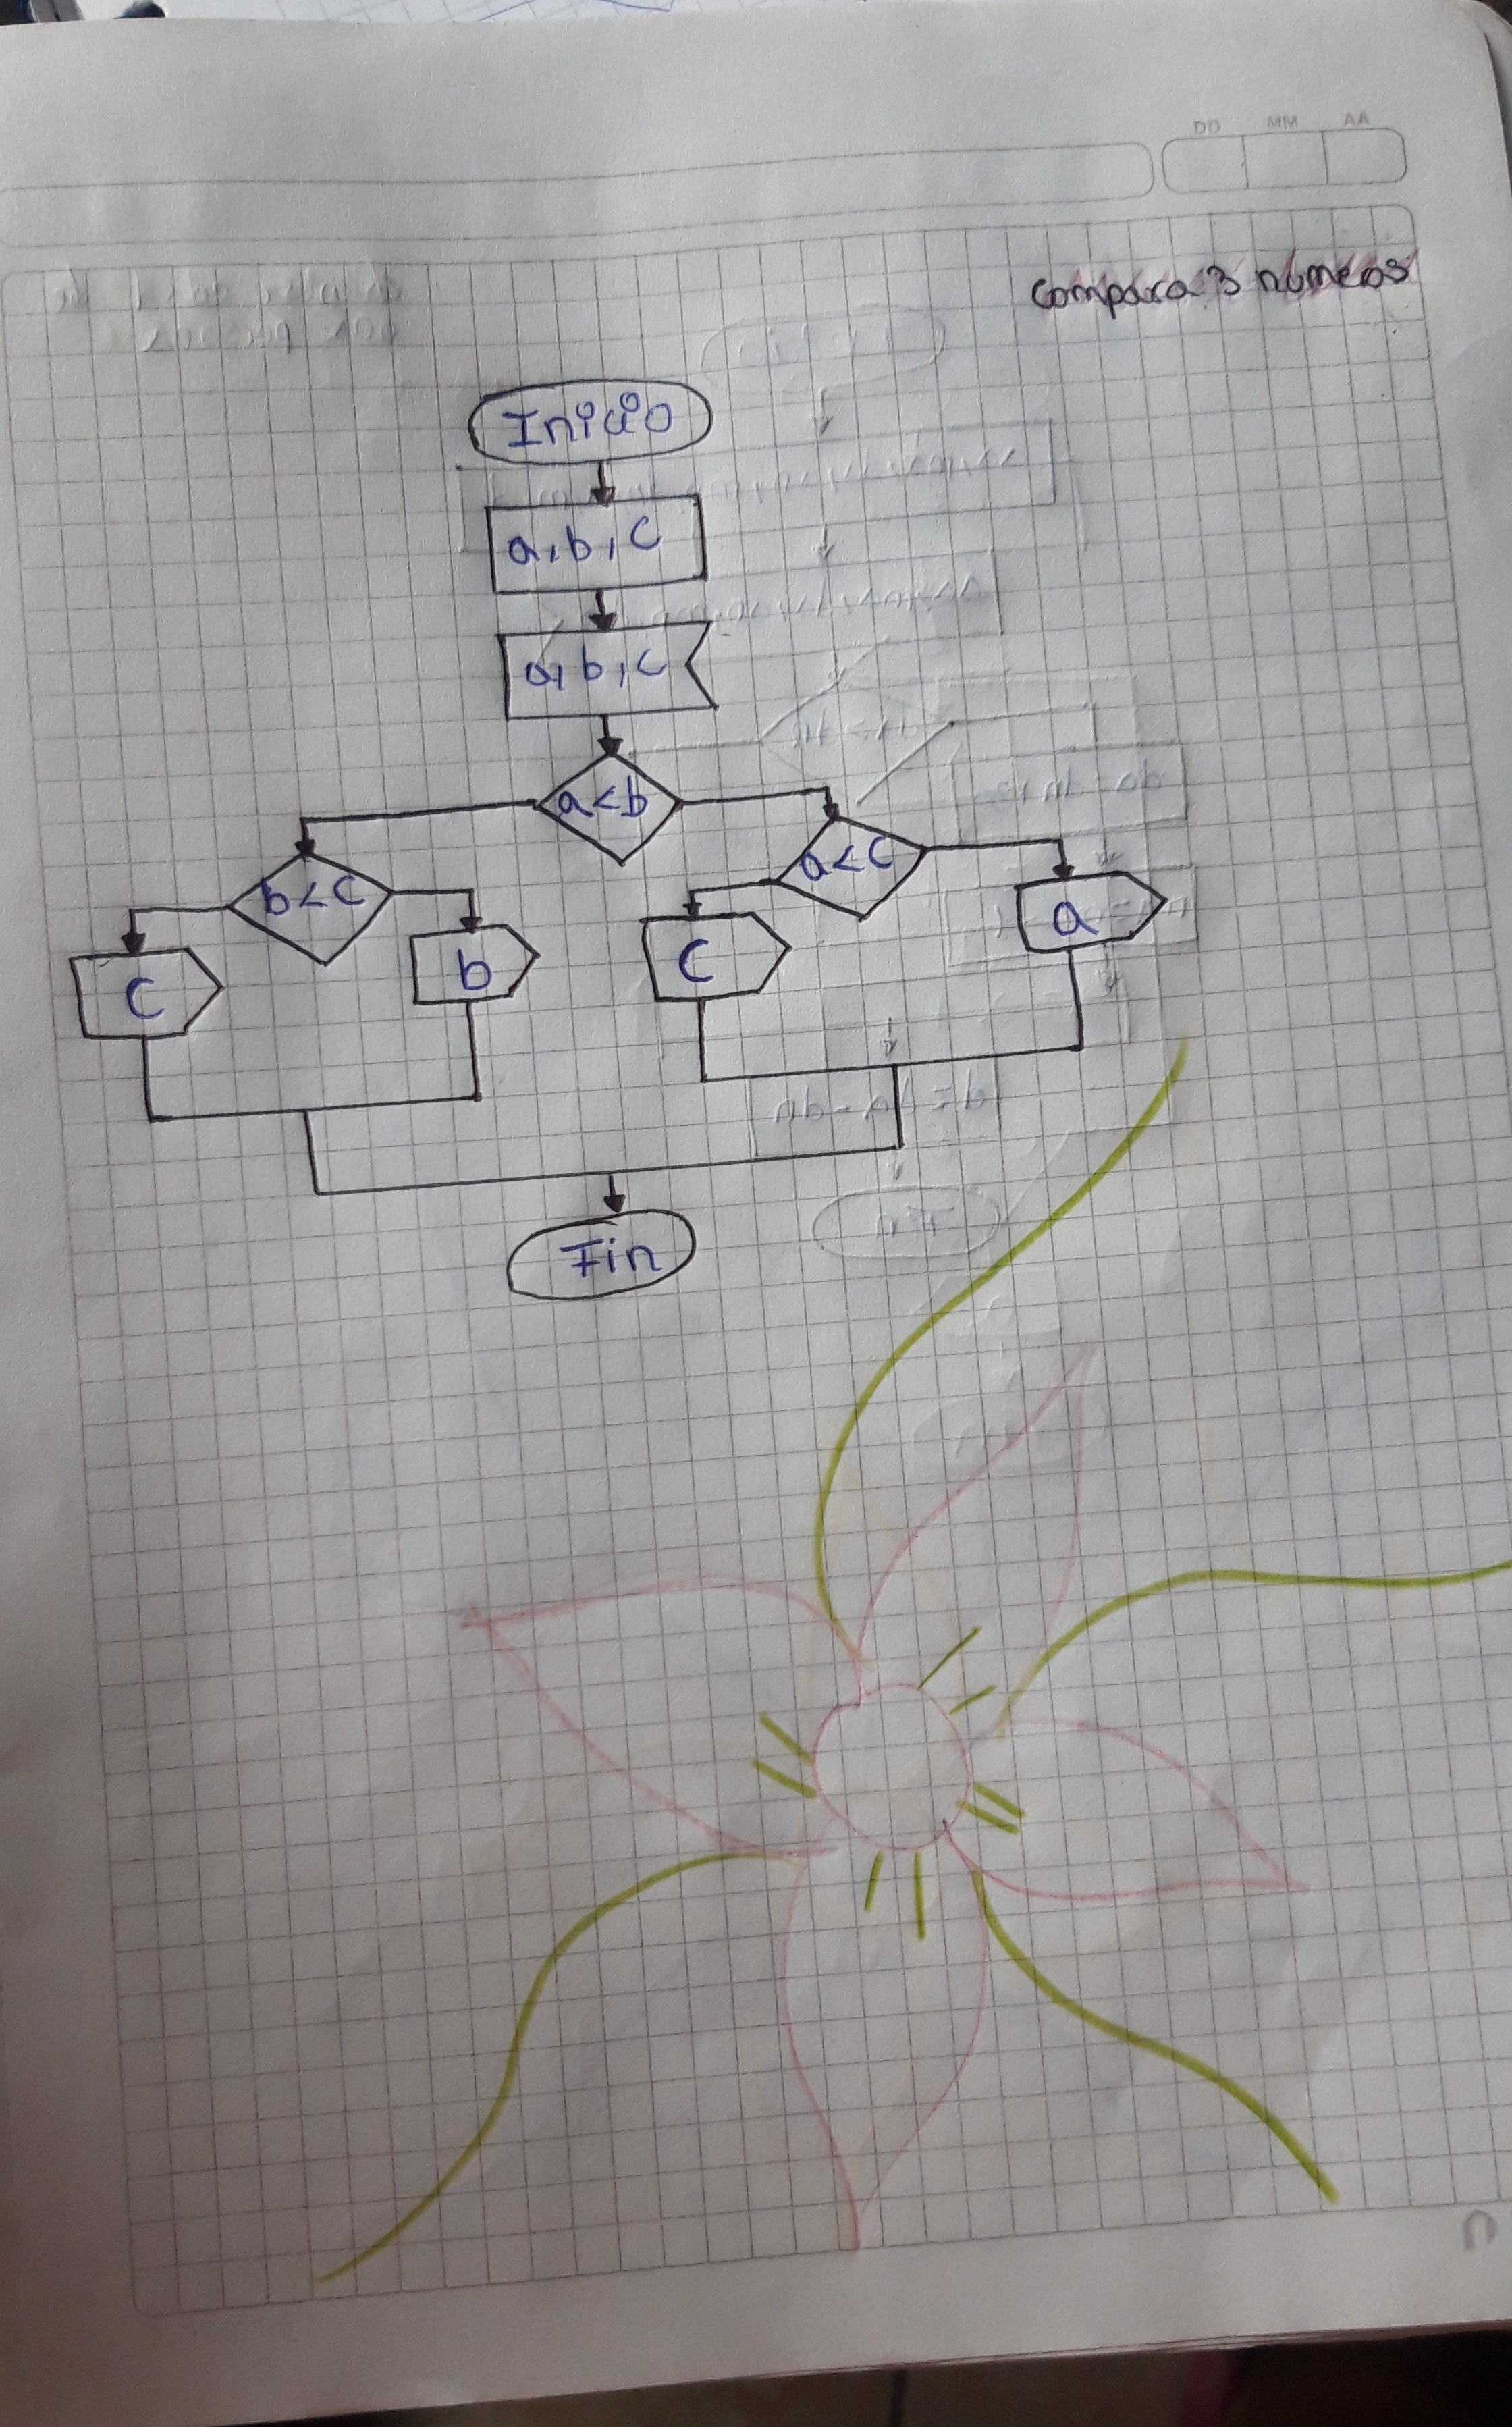 DD MM AA
compara 3 números
Inicio
a, b, c
a, b, c
a < b
b < c
a < c
c
b
c
a
Fin